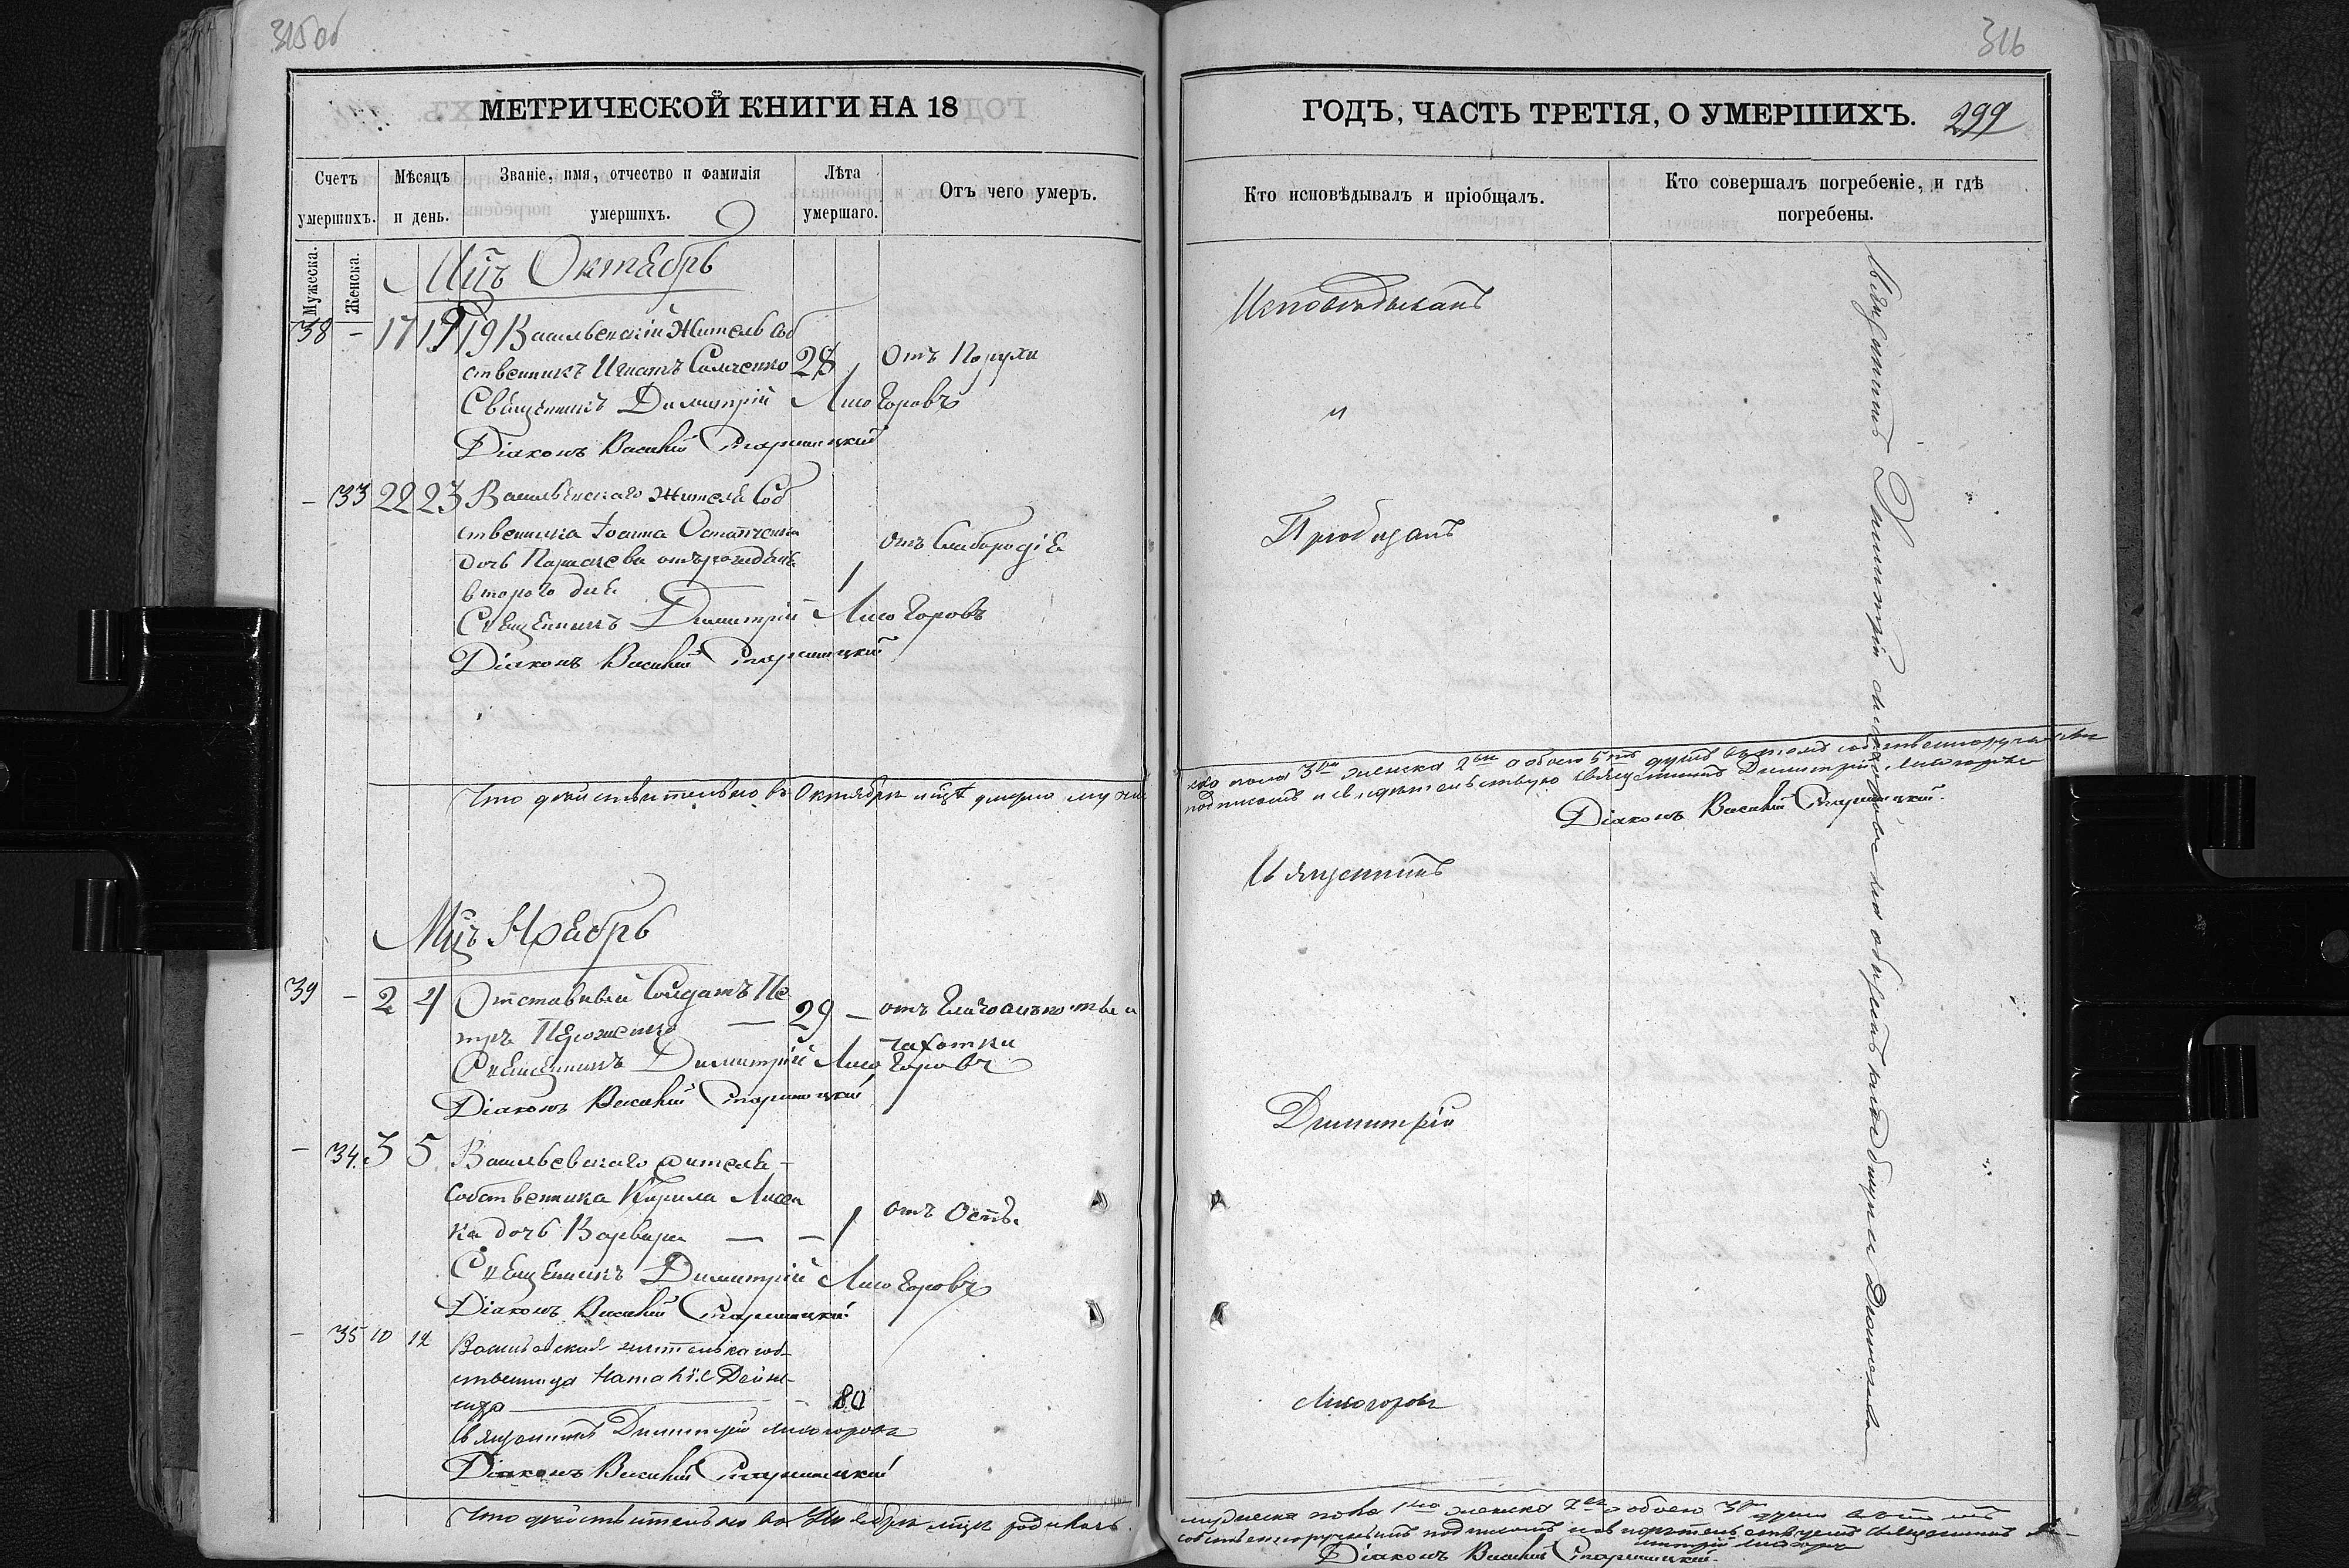 315 об
МЕТРИЧЕСКОЙ КНИГИ НА 18
Счетъ умершихъ.
Мужеска.
Женска.
Мѣсяцъ и день.
Званіе, имя, отчество и фамилія умершихъ.
Лѣта умершаго.
Отъ чего умеръ.
Мцъ Октябрь
38 – 17 19 Васильевскій житель соб
ственникъ Игнатъ 28 Отъ
Священникъ Димитрій Лисогоровъ
Діаконъ Василій Старицкій
– 33 22 23 Васильевскаго жителя соб
ственника Іоанна
дочь Параскева отъ рожденія
втораго дня 1 отъ слабородія
Священникъ Димитрій Лисогоровъ
Діаконъ Василій Старицкій
Что дѣйствительно въ Октябрѣ мцѣ умерло муже
Мцъ Ноябрь
39 – 2 4 Отставный Солдатъ Пе
тръ 29 – отъ
чахотки
Священникъ Димитрій Лисогоровъ
Діаконъ Василій Старицкій
– 34. 3 5 Васильевскаго жителя
собственника Кирила Лисен
ка дочь Варвара — – 1 отъ Оспы
Священникъ Димитрій Лисогоровъ
Діаконъ Василій Старицкій
– 35 10 12 Васильевская жителька соб
ственница Наталія
80
Священникъ Димитрій Лисогоровъ
Діаконъ Василій Старицкій
Что дѣйствительно въ Ноябрѣ мцѣ
316
ГОДЪ, ЧАСТЬ ТРЕТІЯ, О УМЕРШИХЪ. 299
Кто исповѣдывалъ и пріобщалъ.
Кто совершалъ погребеніе, и гдѣ погребены.
Исповѣдывалъ
и
Пріобщалъ
ска пола 3 женска 2 а обоего 5 душъ въ томъ собственноручнымъ
подписомъ и свидѣтельствую Священникъ Димитрій Лисогоровъ
Діаконъ Василій Старицкій.
Священникъ
Димитрій
Лисогоровъ
Священникъ Димитрій Лисогоровъ на общемъ кладбищѣ
мужеска пола 1 женска 2 а обоего 3 души въ томъ
собственноручнымъ подписомъ Священникъ
Димитрій Лисогоровъ
Діаконъ Василій Старицкій.